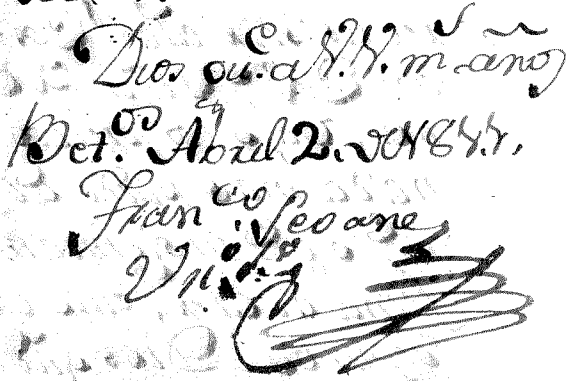 Dios gu.e a V.V. m.s años
Bet.os Abril 2. de 1844.
Fran.co Seoane